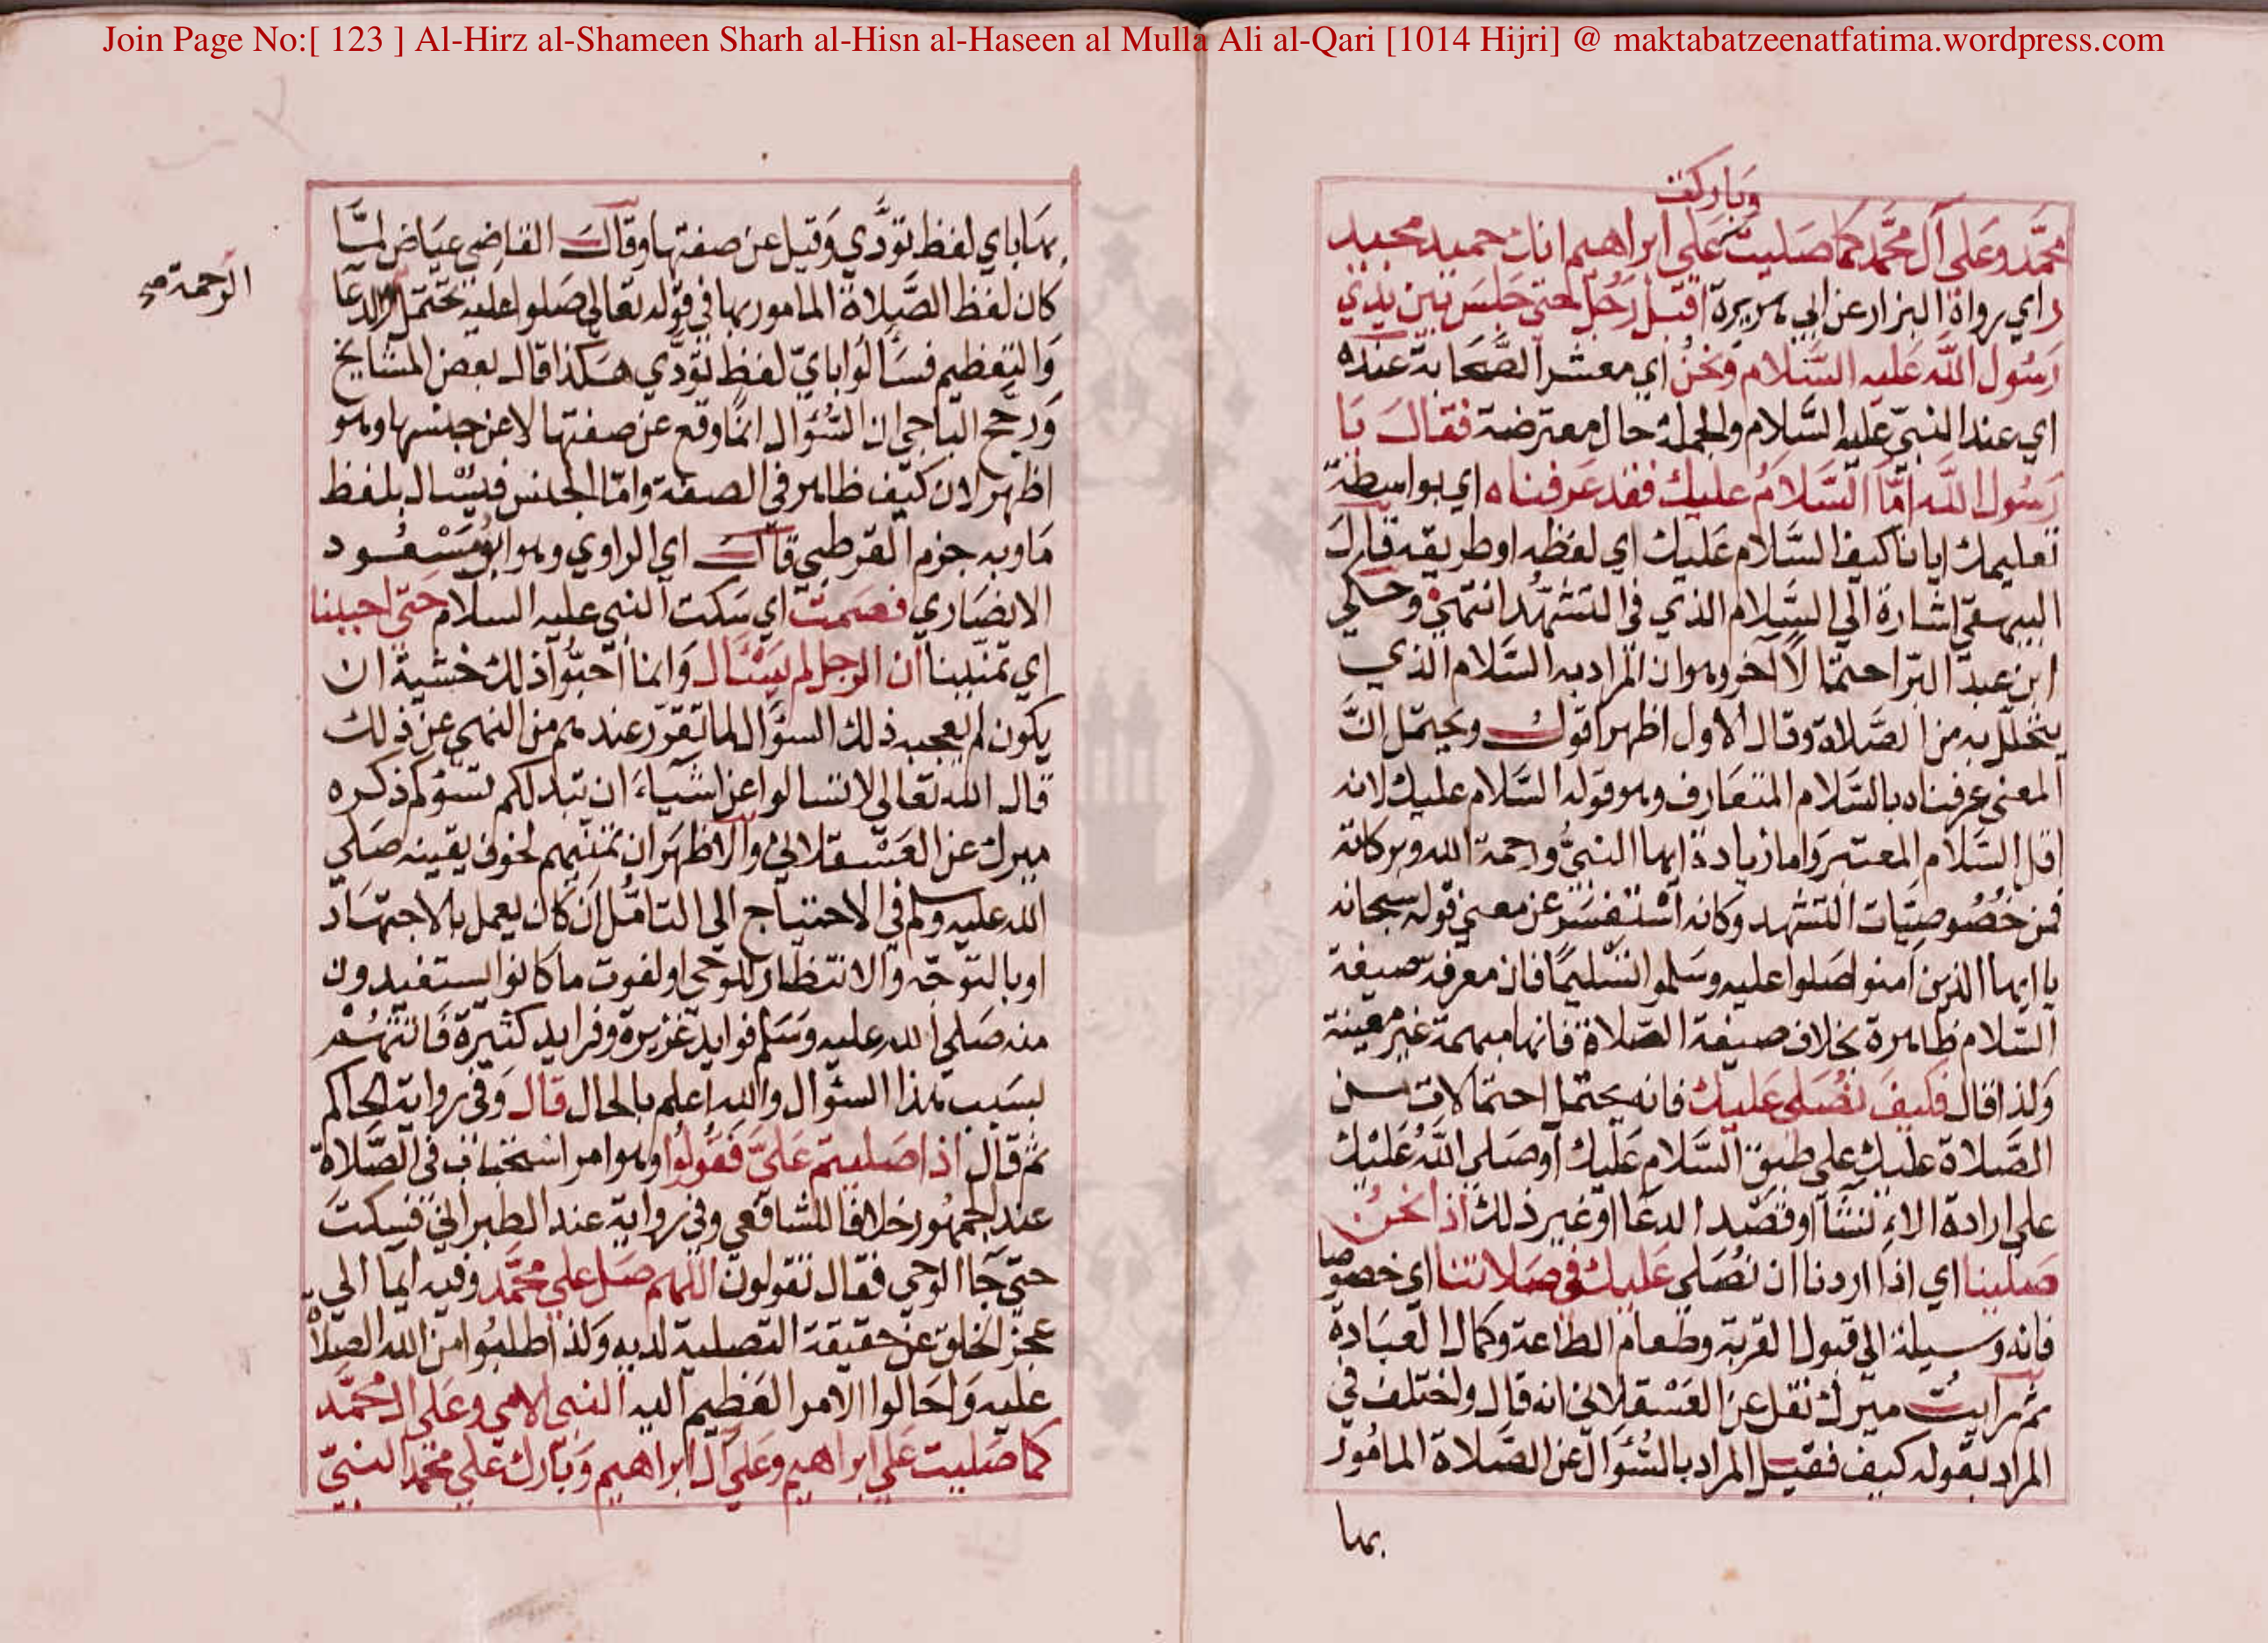 Join Page No:[ 123 ] Al-Hirz al-Shameen Sharh al-Hisn al-Haseen al Mulla Ali al-Qari [1014 Hijri] @ maktabatzeenatfatima.wordpress.com
وباركت
محمد وعلى آل محمد كما صليت على ابراهيم انك حميد مجيد
ر اي رواة البزار عن ابي هريرة اقبل رجل حتى جلس بين يدي
رسول الله عليه السلام ونحن اي معشر الصحابة عنده
اي عند النبي عليه السلام والجملة حال معترضة فقال يا
رسول الله اما السلام عليك فقد عرفناه اي بواسطة
تعليمك ايانا كيف السلام عليك اي لفظه اوطريقه قال
البيهقي اشارة الى السلام الذي في التشهد انتهى وحكى
ابن عبد البر احتمالا آخر وهو ان المراد به السلام الذي
يتحلل به من الصلاة وقال الاول اظهر اقول ويحتمل ان
المعنى عرفناه بالسلام المتعارف وهو قوله السلام عليك لانه
اقل السلام المعتبر واما زيادة ايها النبي ورحمة الله وبركاته
فمن خصوصيات التشهد وكانه استفسر عن معنى قوله سبحانه
يا ايها الذين آمنوا صلوا عليه وسلموا تسليما فان معرفة صيغة
السلام ظاهرة بخلاف صيغة الصلاة فانها مبهمة غير معينة
ولذا قال فكيف نصلى عليك فانه يحتمل احتمالات من
الصلاة عليك على طبق السلام عليك او صلى الله عليك
على ارادة الانشآ او قصد الدعا او غير ذلك اذا نحن
صلينا اي اذا اردنا ان نصلى عليك في صلاتنا اي خصوصا
فانه وسيلة الى قبول القربة وطعام الطاعة وكمال العبادة
ثم رايت ميرك نقل عن العسقلاني انه قال واختلف في
المراد بقوله كيف فقيل المراد بالسؤال عن الصلاة المامور
بها
بها باي لفظ تؤدي وقيل عن صفتها وقال القاضي عياض لما
كان لفظ الصلاة المامور بها في قوله تعالى صلوا عليه تحتمل والدعا
الرحمة صح
والتعظيم فسألوا باي لفظ تؤدي هكذا قال بعض المشايخ
ورجح الباجي ان السؤال انما وقع عن صفتها لا عن جنسها وهو
اظهر لان كيف ظاهر في الصفة واما الجنس فيسئال بلفظ
ما وبه جزم القرطبي قال اي الراوي وهو ابو مسعود
الانصاري فصمت اي سكت النبي عليه السلام حتى احببنا
اي تمنينا ان الرجل لم يسئال وانما احبوا ذلك خشية ان
يكون لم يعجبه ذلك السؤال لما تقرر عندهم من النهي عن ذلك
قال الله تعالى لا تسالوا عن اشياء ان تبدلكم تسؤكم ذكره
ميرك عن العسقلاني والاظهر ان تمنيهم لخوف يقينه صلى
الله عليه وسلم في الاحتياج الى التامل ان كان يعمل بالاجتهاد
او بالتوجه والانتظار للوحي او لفوت ما كانوا يستفيدون
منه صلى الله عليه وسلم فوايد غزيرة وفرايد كثيرة فاتتهم
بسبب هذا السؤال والله اعلم بالحال قال وفي رواية الحاكم
ثم قال اذا صليتم على فقولوا وهو امر استحباب في الصلاة
عند الجمهور خلافا للشافعي وفي رواية عند الطبراني فسكت
حتى جآ الوحي فقال تقولون اللهم صل على محمد وفيه ايما الى
عجز الخلق عن حقيقة التصلية لديه وكذا طلبوا من الله الصلاة
عليه واحالوا الامر العظيم اليه النبي الامي وعلى آل محمد
كما صليت على ابراهيم وعلى آل ابراهيم وبارك على محمد النبي